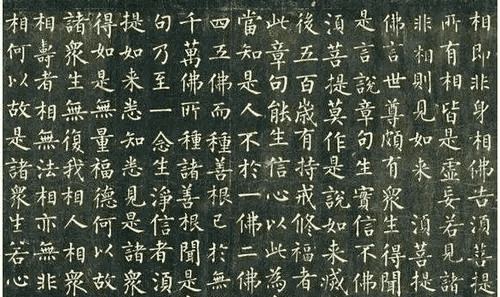 相即非身相佛告須菩提
所有相皆是虛妄若見諸
非相則見如來　須菩提
佛言世尊頗有衆生得聞
是言說章句生實信不佛
須菩提莫作是說如來滅
後五百歲有持戒修福者
此章句能生信心以此為
當知是人不於一佛二佛
四五佛而種善根已於無
千萬佛所種諸善根聞是
句乃至一念生淨信者須
提如來悉知悉見是諸衆
得如是無量福德何以故
諸衆生無復我相人相衆
相壽者相無法相亦無非
相何以故是諸衆生若心